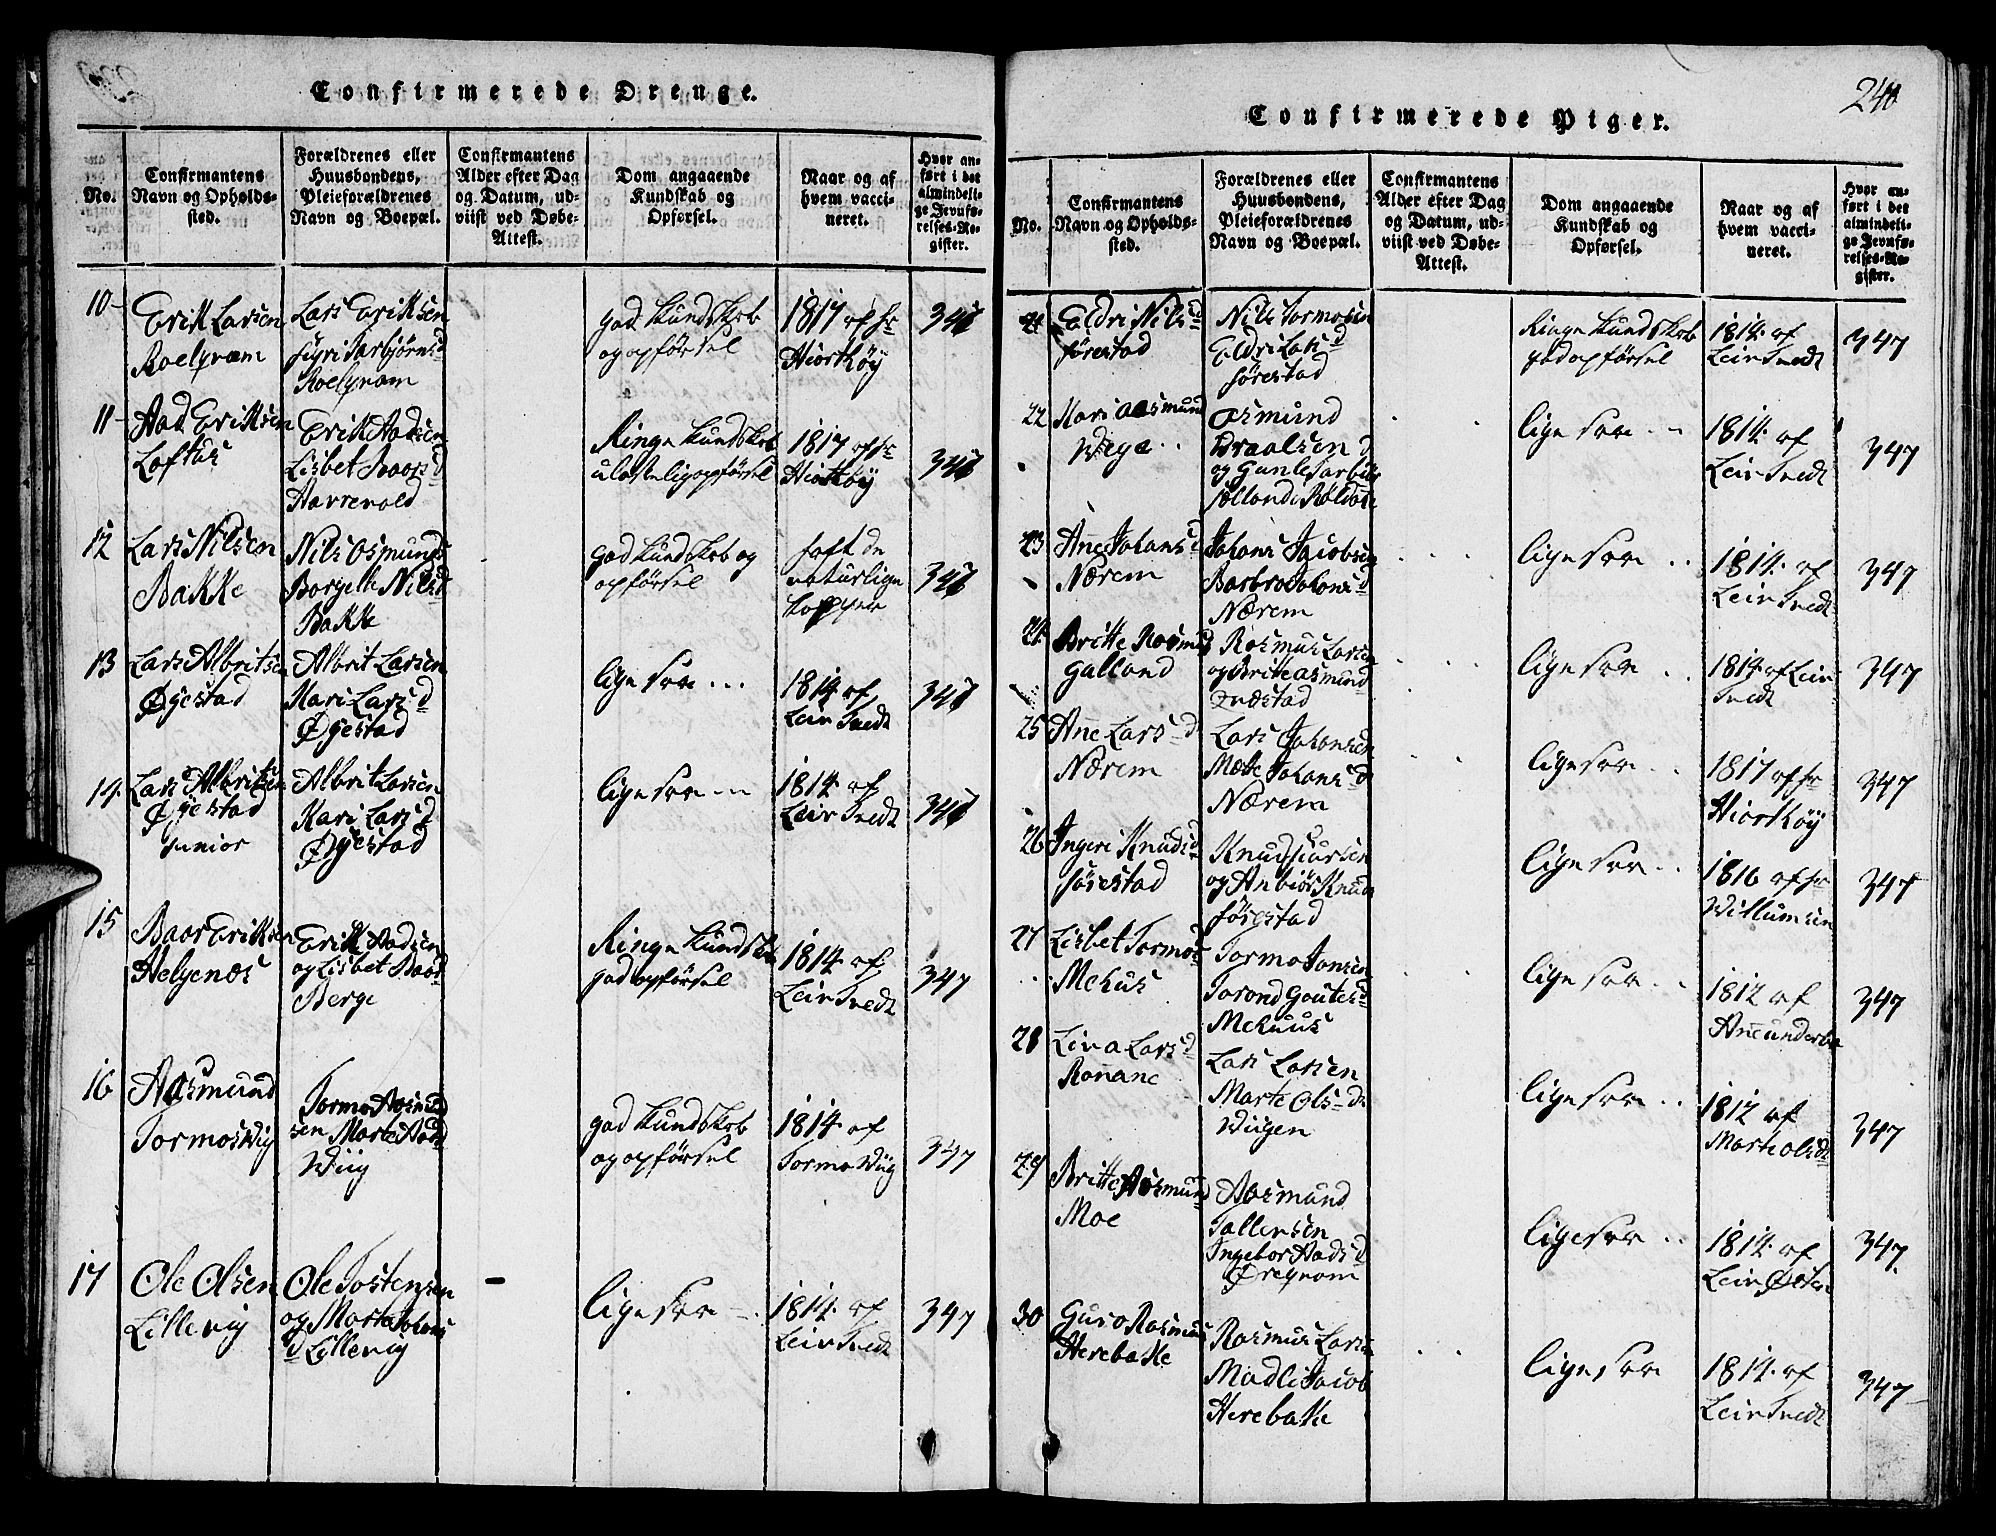 Confirmerede Drenge.
No.
Confirmantens
Navn og Opholds-
sted.
Forældrenes eller
Huusbondens,
Pleieforældrenes
Navn og Boepæl.
Confirmantens
Alder efter Dag
og Datum, ud-
viist ved Døbe-
Attest.
Dom angaaende
Kundskab og
Opførsel.
Naar og af
hvem vacci-
neret.
Hvor an-
ført i det
almindeli-
ge Jevnfø-
relses-Re-
gister.
10-
Erik Larsen
Roelqvam
Lars Eriksen
Sigri Torbjørns d
Roelqvam
god Kundskab
og opførsel
1817 af hr
Hiortkøy
347
11-
Aad Eriksen
Lofthus
Erik Aadsen
Lisbet Baars d
Haverevold
Ringe Kundskab
ulastelig opførsel
1817 af hr
Hiortkøy
347
12
Lars Nilsen
Bakke
Nils Osmunds
Borgelle Nilsd
Bakke
god Kundskab og
opførsel
haft de
naturlige
kopper
347
13
Lars Albritsen
Øyestad
Albrit Larsen
Kari Lars d
Øyestad
ligesaa ...
1814 af
Leir Tvedt
347
14
Lars Albritsen
Øyestad
junior
Albrit Larsen
Kari Lars d
Øyestad
ligesaa ...
1814 af
Leir Tvedt
347
15
Baar Eriksen
Helgenæs
Erik Aadsen
og Lisbet Baars
Berge
Ringe Kundskab
god opførsel
1814 af
Leir Tvedt
347
16
Aasmund
Tormos Wiig
Tormo Aasmund
sen Marte Aads
Wiig
god Kundskab
og opførsel
1814 af
Tormo Wiig
347
17
Ole Olsen
Lillevig
Ole Tostensen
og Marta Johans
d Lillevig
ligesaa
1814 af
Leir Tvedt
347
240
Confirmerede Piger.
No.
Confirmantens
Navn og Opholds-
sted.
Forældrenes eller
Huusbondens,
Pleieforældrenes
Navn og Boepæl.
Confirmantens
Alder efter Dag
og Datum, ud-
viist ved Døbe-
Attest.
Dom angaaende
Kundskab og
Opførsel.
Naar og af
hvem vacci-
neret.
Hvor an-
ført i det
almindeli-
ge Jevnfø-
relses-Re-
gister.
21
Eldri Nils d
Sørestad
Nils Tormosen
Eldri Lars d
Sørestad
Ringe Kundskab
god opførsel
1814 af
Leir Tvedt
347
22
Kari Aasmund
Wege
Osmund
Braalsen
og Gunle
Røldahl
ligesaa
1814 af
Leir Tvedt
347
23
Ane Johans d
Nærem
Johans Jacobsen
Barbro Johans d
Nærem
ligesaa
1814 af
Leir Tvedt
347
24
Britte Rasmus
Galland
Rasmus Larsen
og Britte Asmund
ligesaa
1814 af Leir
Tvedt
347
25
Ane Lars d
Nærem
Lars Johansen
Mette Johans d
Nærem
ligesaa
1817 af hr
Hiortkøy
347
26
Ingeri Knuds d
Sørestad
Knud Siursen
og Anbiør Knuds
Sørestad
ligesaa
1816 af hr
Willumsen
347
27
Lisbet Tormos
Mehus
Tormo Jonsen
Torond Goutes d
Mehuus
ligesaa
1812 af
347
28
Lina Lars d
Ronane
Lars Larsen
Marte Ols d
Wiigen
ligesaa
1812 af
Marte Olsdt
347
29
Britte Aasmund
Moe
Aasmund
Tallersen
Ingebor Aads d
Øreqvam
ligesaa
1814 af
Leir
347
30
Guro Rasmus
Herebakke
Rasmus Larsen
Madli Jacob
Herebakke
ligesaa
1814 af
Leir Tvedt
347